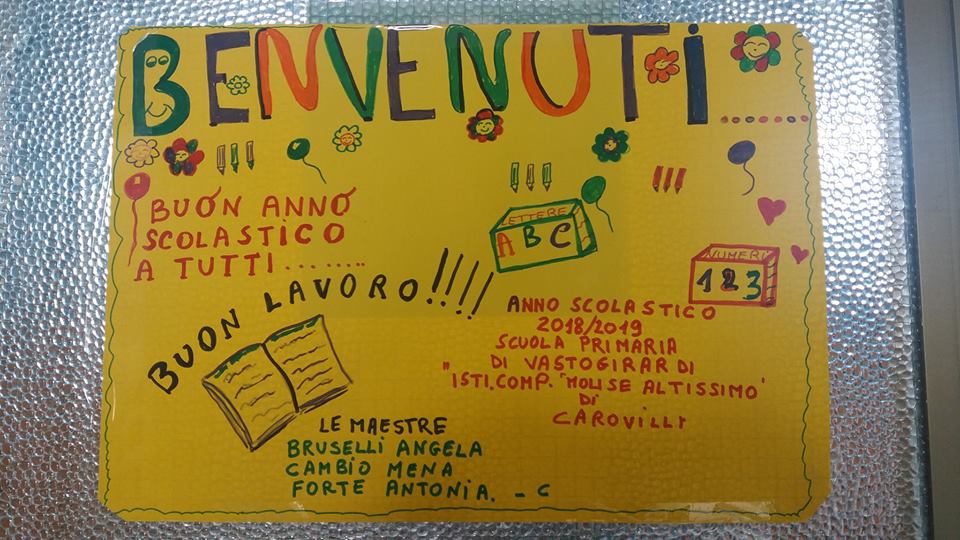 BENVENUTI........
BUON ANNO
SCOLASTICO
A TUTTI........
LETTERE
A B C
NUMERI
1 2 3
BUON LAVORO!!!!
ANNO SCOLASTICO
2018/2019
SCUOLA PRIMARIA
DI VASTOGIRARDI
"ISTI.COMP. "MOLISE ALTISSIMO"
DI
CAROVILLI
LE MAESTRE
BRUSELLI ANGELA
CAMBIO MENA
FORTE ANTONIA. - C